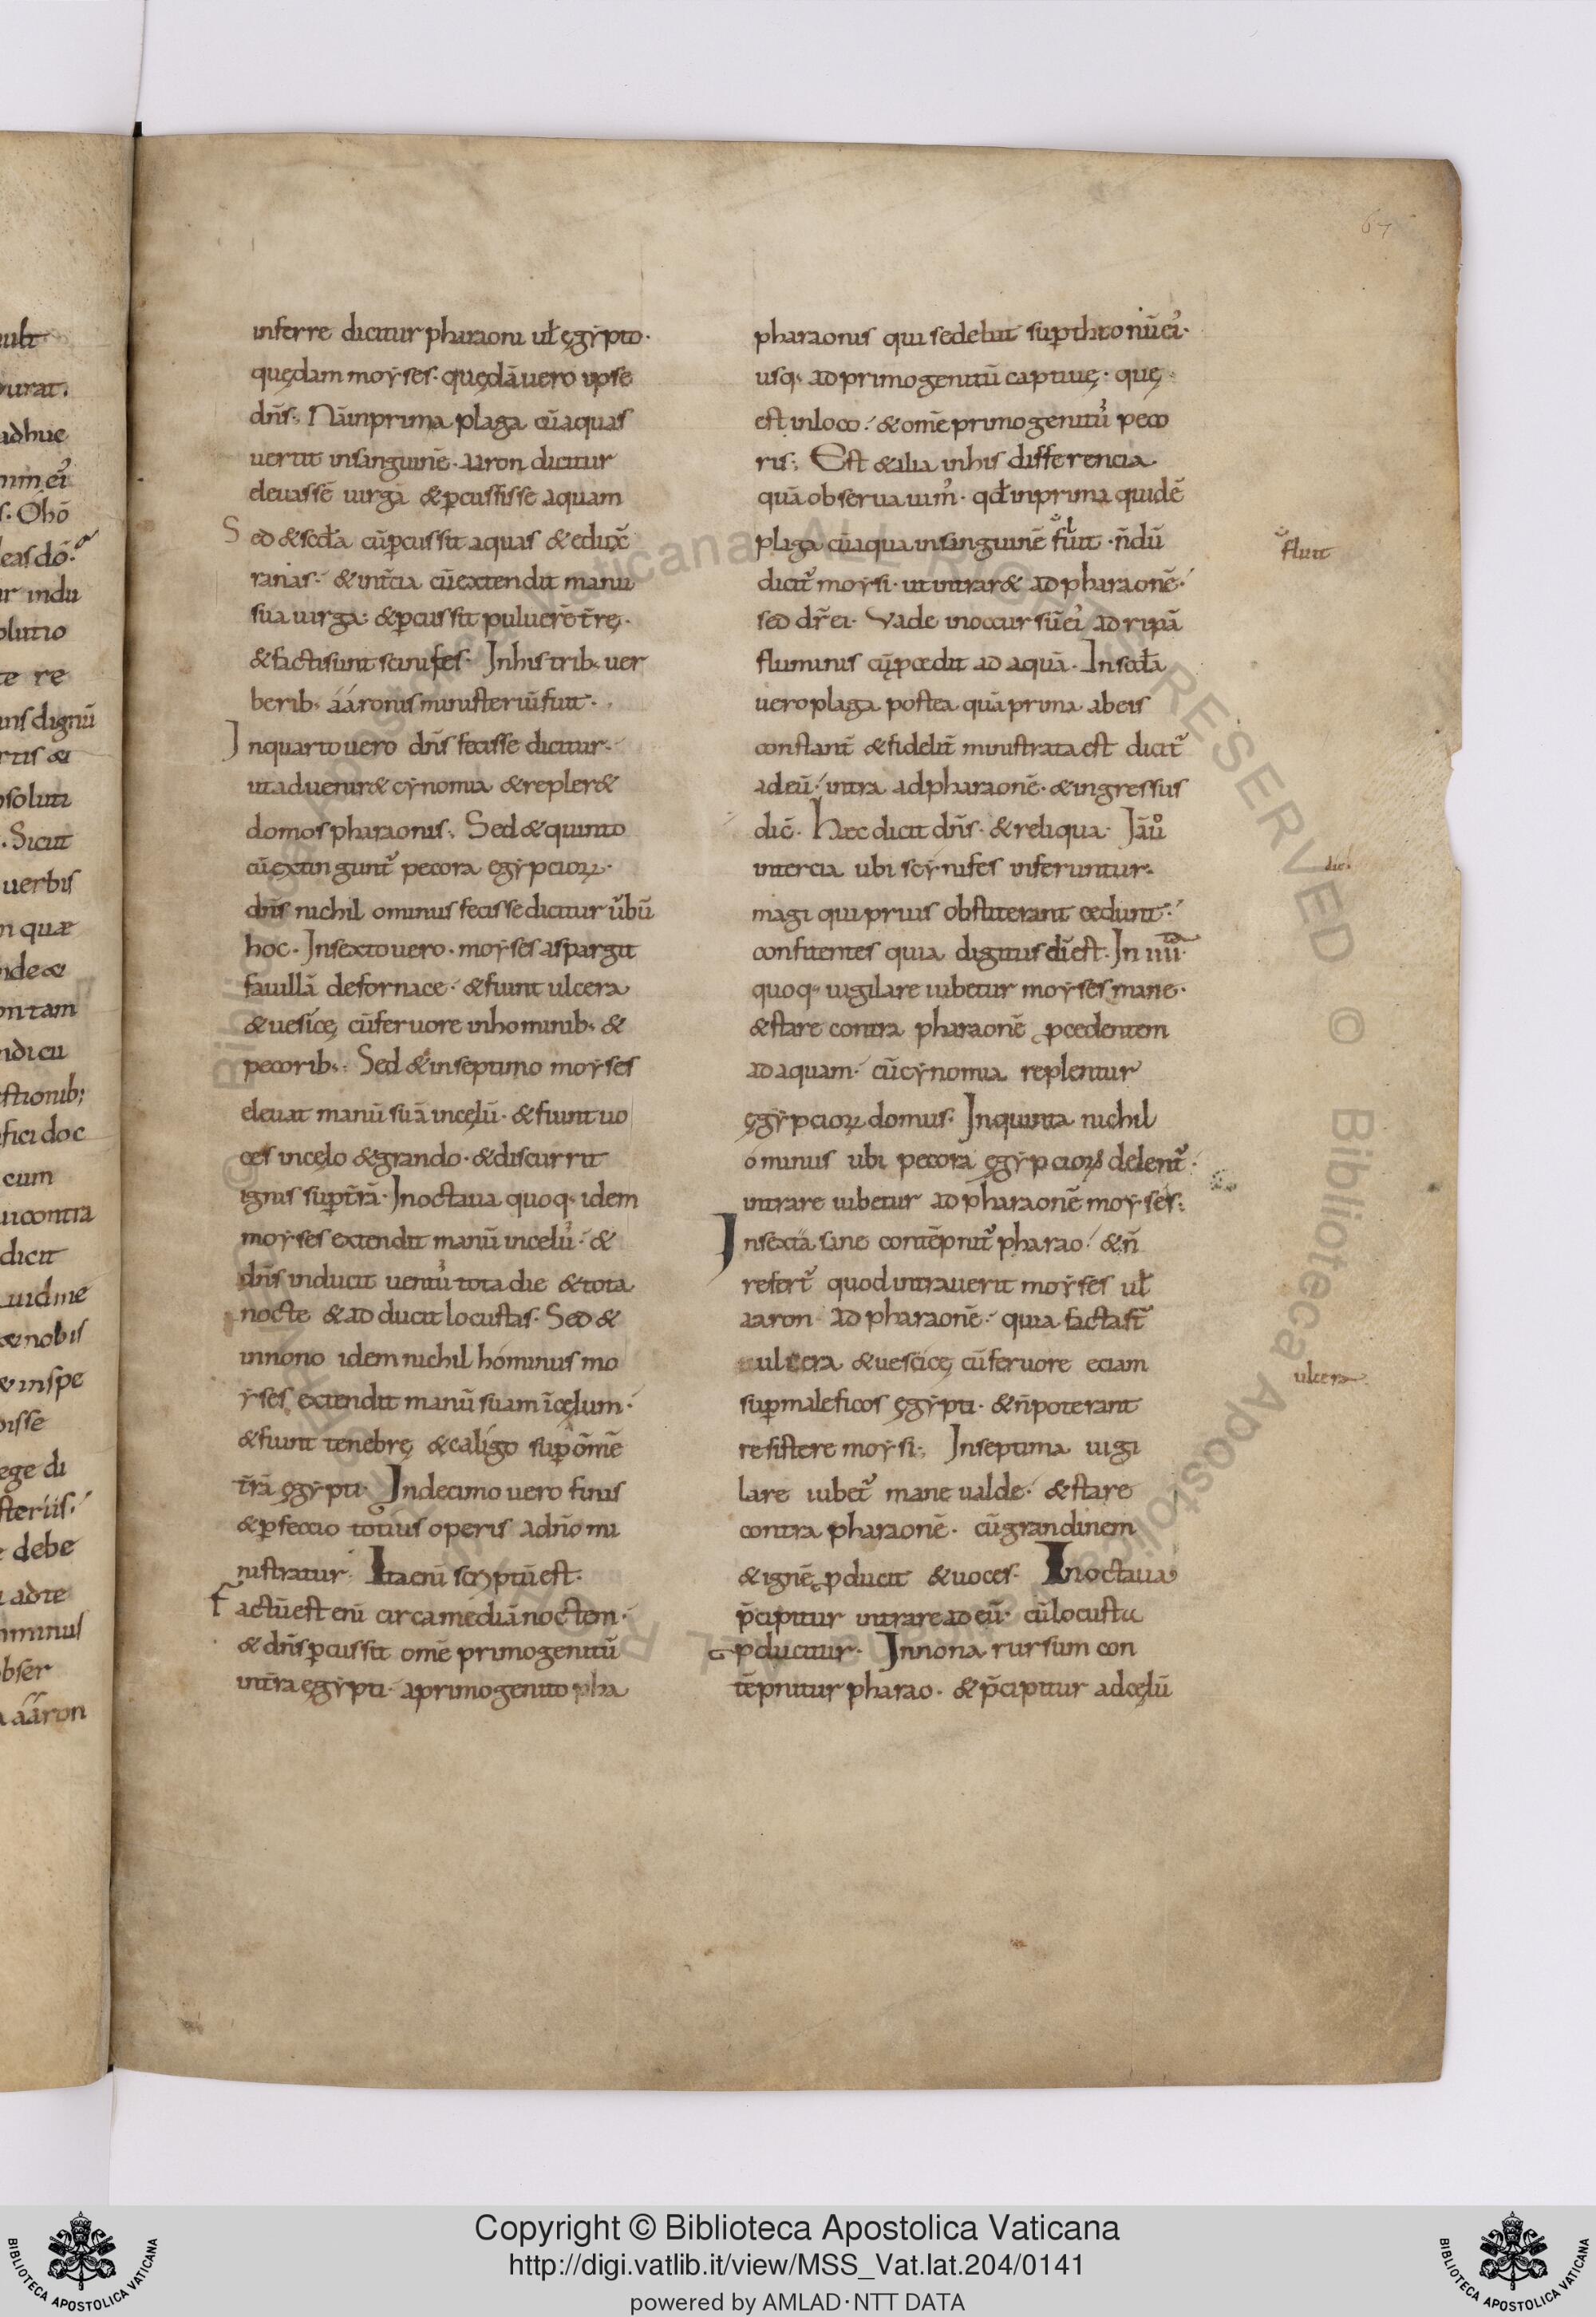 67
inferre dicitur pharaoni uł ęgẏpto·
quędam moẏses· quędā uero ipse
dn̄s· Nā in prima plaga cū aquas
uertit in sanguinē· aaron dicitur
eleuasse uirgā & percussisse aquam
Sed & scd̄a cū percussit aquas & eduxē
ranas· & in t̄cia cū extendit manu
sua uirga· & percussit puluerē t̄rę·
& facti sunt scinifes· In his trib; uer
berib; ááronis ministeriū fuit·
In quarto uero dn̄s fecisse dicitur·
ut aduenir& cẏnomia & repler&
domos pharaonis· Sed & quinto
cū extingunt̄ pecora egẏpcioꝝ·
dn̄s nichil ominus fecisse dicitur ūbū
hoc· In sexto uero· moẏses aspargit
fauillā de fornace· & fiunt ulcera
& uesicę cū feruore in hominib; &
pecorib; Sed & in septimo moẏses
eleuat manū suā in cęlū· & fiunt uo
ces in cęlo & grando· & discurrit
ignis sup t̄rā· In octaua quoq; idem
moẏses extendit manū in celū· &
dn̄s inducit uentū tota die & tota
nocte & adducit locustas· Sed &
in nono idem nichil hominus mo
ẏses extendit manū suam ī cęlum·
& fiunt tenebrę & caligo sup om̄ē
t̄rā ęgẏpti· In decimo uero finis
& pfeccio totius operis a dn̄o mi
nistratur· Ita eni scriptū est·
Factū est eni circa mediā noctem·
& dn̄s pcussit omē primogenitū
in t̄ra ęgẏpti· a primogenito pha
pharaonis qui sedebit sup throniū ei·
usq; ad primogenitū captiuę· quę
est in loco· & omē primogenitū peco
ris· Est & alia in his differencia
quā obseruauim̄· qd̄ in prima quidē
plaga cū aqua in sanguinē fluit· n̄dū
dicit̄ moẏsi· ut intrar& ad pharaonē·
sed dr̄ ei· Vade in occursū ei ad ripā
fluminis cū pcedit ad aquā· In scd̄a
uero plaga postea quā prima ab eis
constant̄ & fidelit̄ ministrata est dicit̄
ad eū· intra ad pharaonē· & ingressus
dic̄· Hæc dicit dn̄s· & reliqua· Jā ůo
in tercia ubi scẏnifes inferuntur·
magi qui prius obstiterant cedunt·
confitentes quia digitus dī est· In iiii·
quoq; uigilare iubetur moẏses mane·
& stare contra pharaonē pcedentem
ad aquam· cū cẏnomia replentur
ęgẏpcioꝝ domus· In quinta nichil
ominus ubi pecora ęgẏpcioꝝ delent̄·
intrare iubetur ad pharaonē moẏses·
In sexta sane contēpnit̄ pharao· & n̄
refert̄ quod intrauerit moẏses uł
aaron ad pharaonē· quia facta st̄
ulcera & uescicę cū feruore eciam
sup maleficos ęgẏpti· & n̄ poterant
resistere moẏsi· In septima uigi
lare iubet̄ mane ualde· & stare
contra pharaonē· cū grandinem
& ignē pducit & uoces· In octaua
p̄cipitur intrare ad eū· cū locusta
pducitur· In nona rursum con
tēpnitur pharao· & p̄cipitur ad cęlū
fluit
ulcera
Copyright © Biblioteca Apostolica Vaticana
http://digi.vatlib.it/view/MSS_Vat.lat.204/0141
powered by AMLAD·NTT DATA
BIBLIOTECA APOSTOLICA VATICANA
BIBLIOTECA APOSTOLICA VATICANA